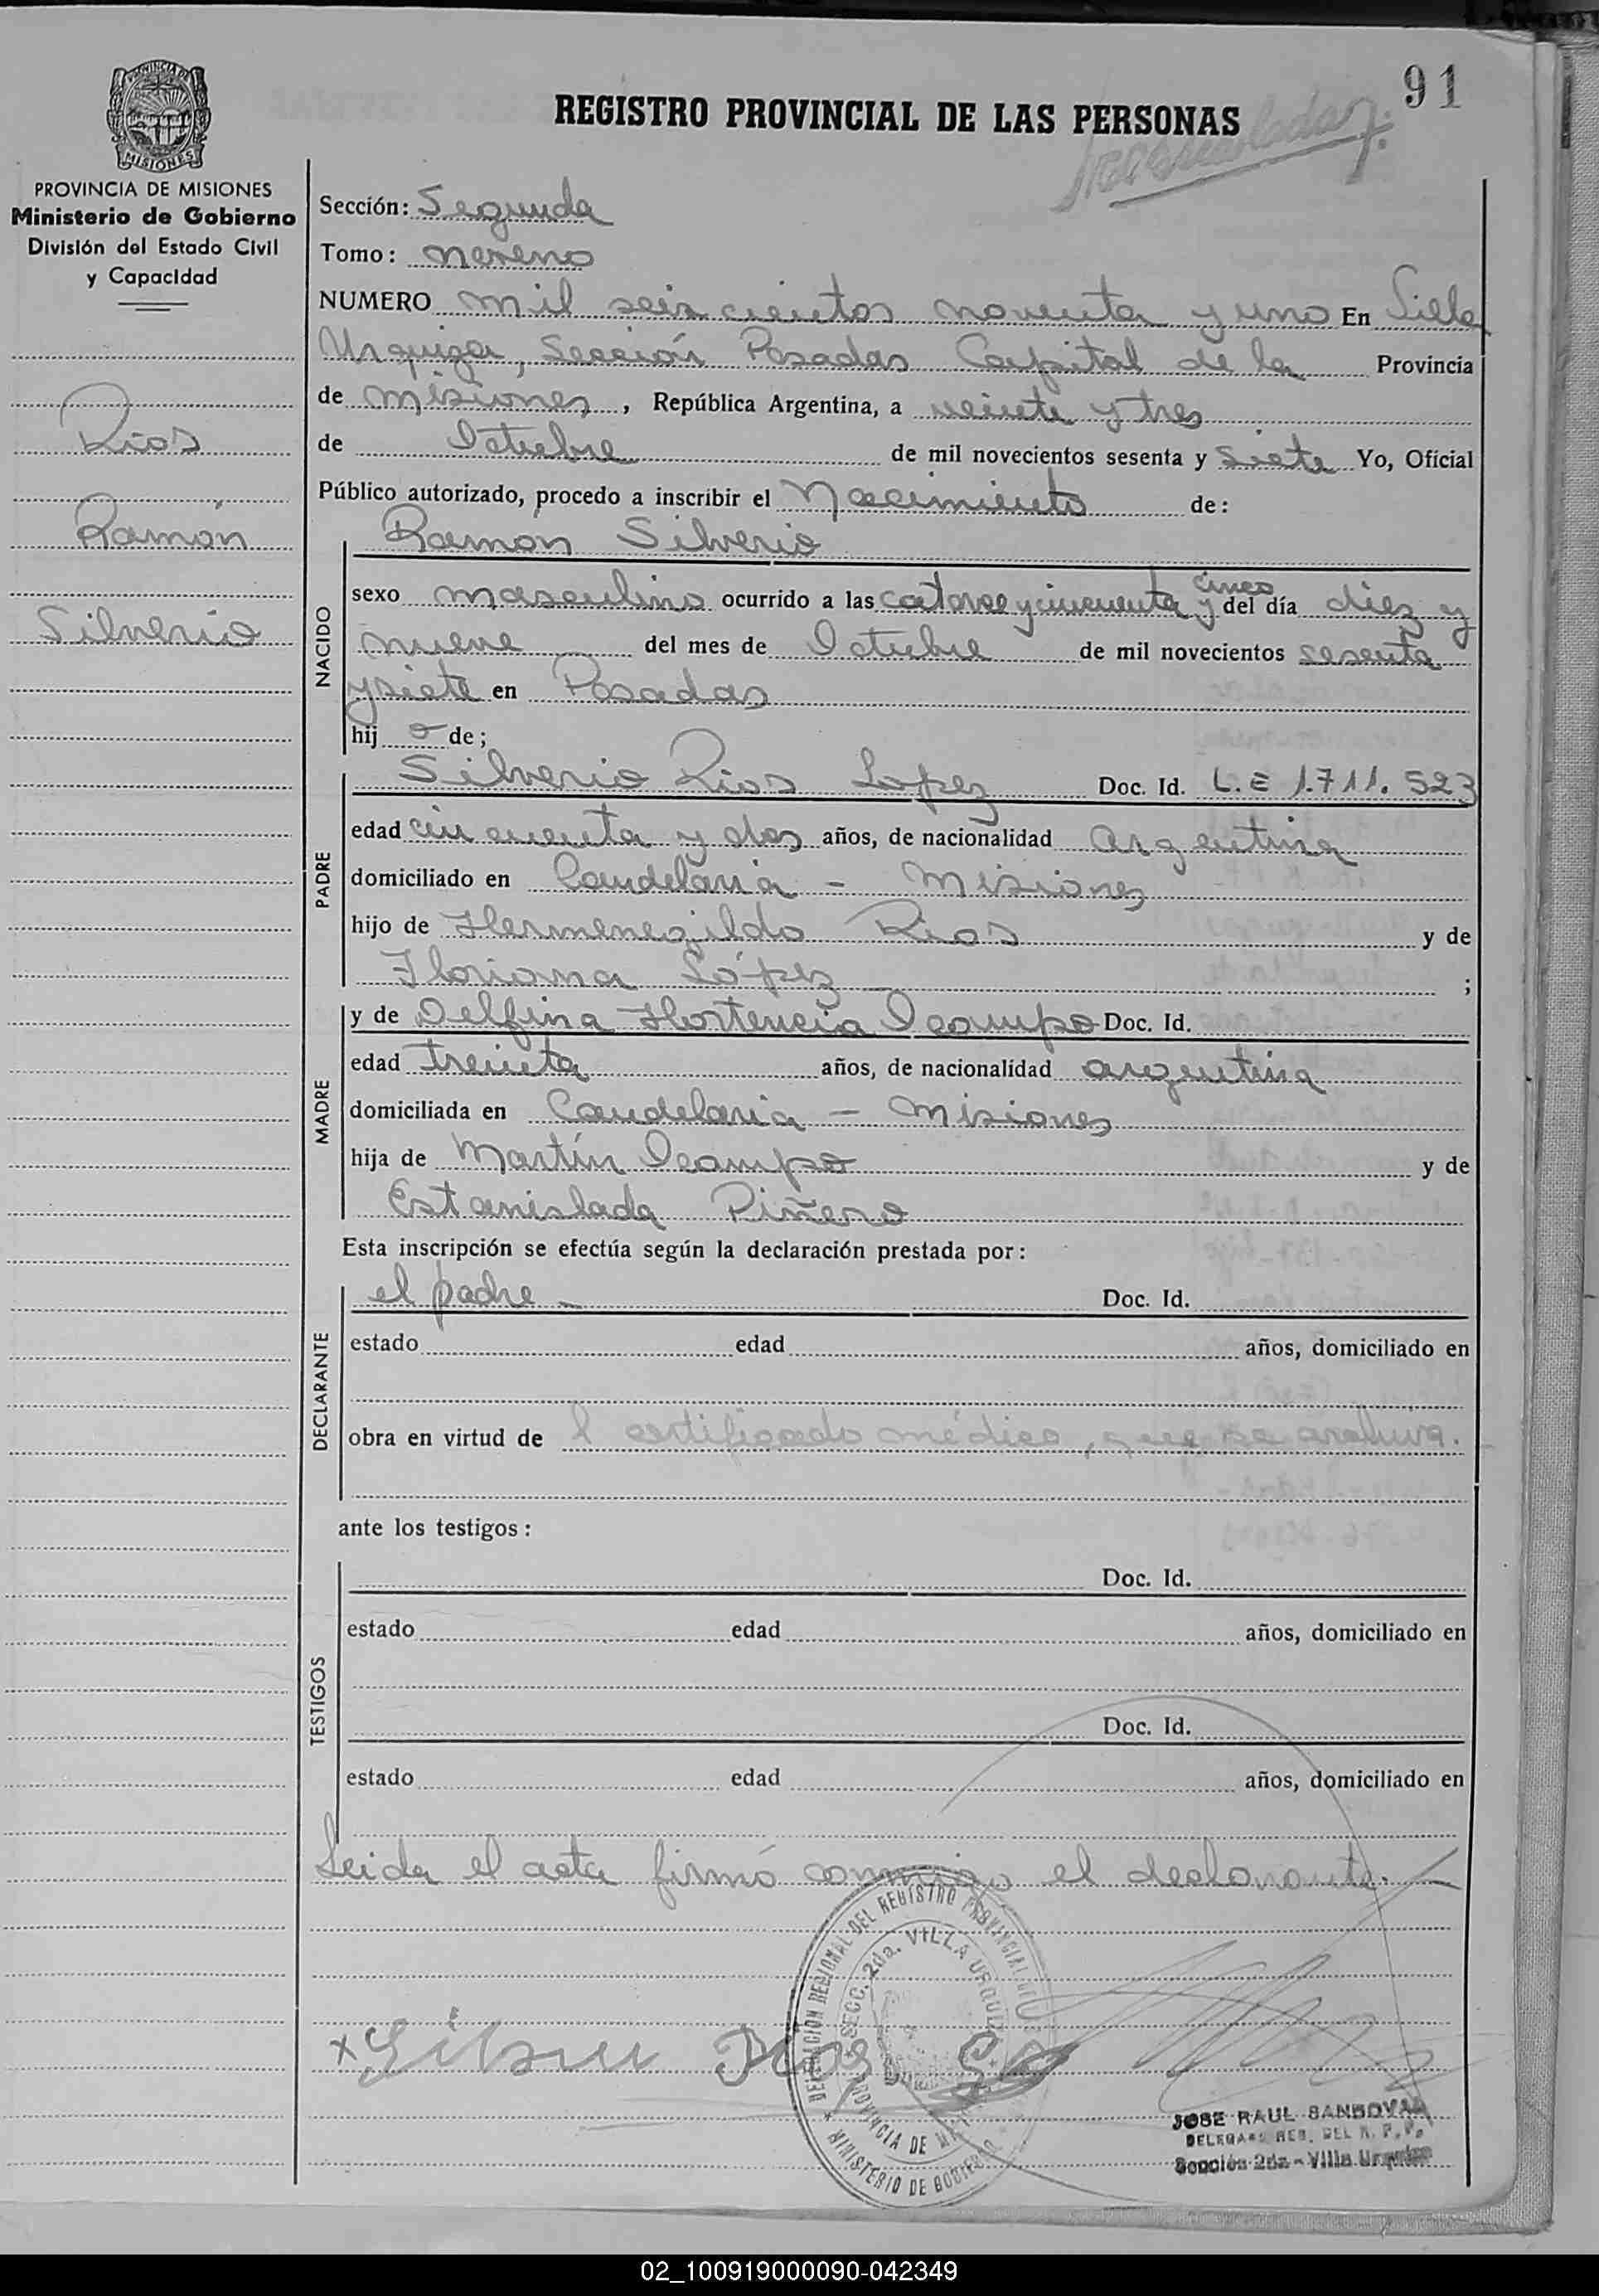 91
REGISTRO PROVINCIAL DE LAS PERSONAS
PROVINCIA DE
MISIONES
PROVINCIA DE MISIONES
Ministerio de Gobierno
División del Estado Civil
y Capacidad
Rios
Ramón
Silverio
Sección: Segunda
Tomo: noveno
NUMERO mil seis cientos noventa y uno En Villa
Urquiza, Sección Posadas Capital de la Provincia
de misiones, República Argentina, a veinte y tres
de Octubre de mil novecientos sesenta y siete Yo, Oficial
Público autorizado, procedo a inscribir el Nacimiento de:
Ramón Silverio
NACIDO
sexo masculino ocurrido a las catorce y cincuenta y cinco del día diez y
nueve del mes de Octubre de mil novecientos sesenta
y siete en Posadas
hijo de;
PADRE
Silverio Rios Lopez Doc. Id. L.E 1.711.523
edad cincuenta y dos años, de nacionalidad argentina
domiciliado en Candelaria - misiones
hijo de Hermenegildo Rios y de
Floriana López ;
MADRE
y de Delfina Hortencia Ocampo Doc. Id.
edad treinta años, de nacionalidad argentina
domiciliada en Candelaria - misiones
hija de Martín Ocampo y de
Estanislada Piñero
Esta inscripción se efectúa según la declaración prestada por:
DECLARANTE
el padre - Doc. Id.
estado edad años, domiciliado en
obra en virtud de l certificado médico, que se archiva.
ante los testigos:
TESTIGOS
Doc. Id.
estado edad años, domiciliado en
Doc. Id.
estado edad años, domiciliado en
Leida el acta firmó conmigo el declarante. -
DELEGACION REGIONAL DEL REGISTRO PROVINCIAL DE
SECC. 2da. VILLA URQUIZA
PROVINCIA DE
MINISTERIO DE GOBIERNO
JOSE RAUL SANDOVAL
DELEGADO REG. DEL R. P. P.
Sección 2da - Villa Urquiza
02_100919000090-042349